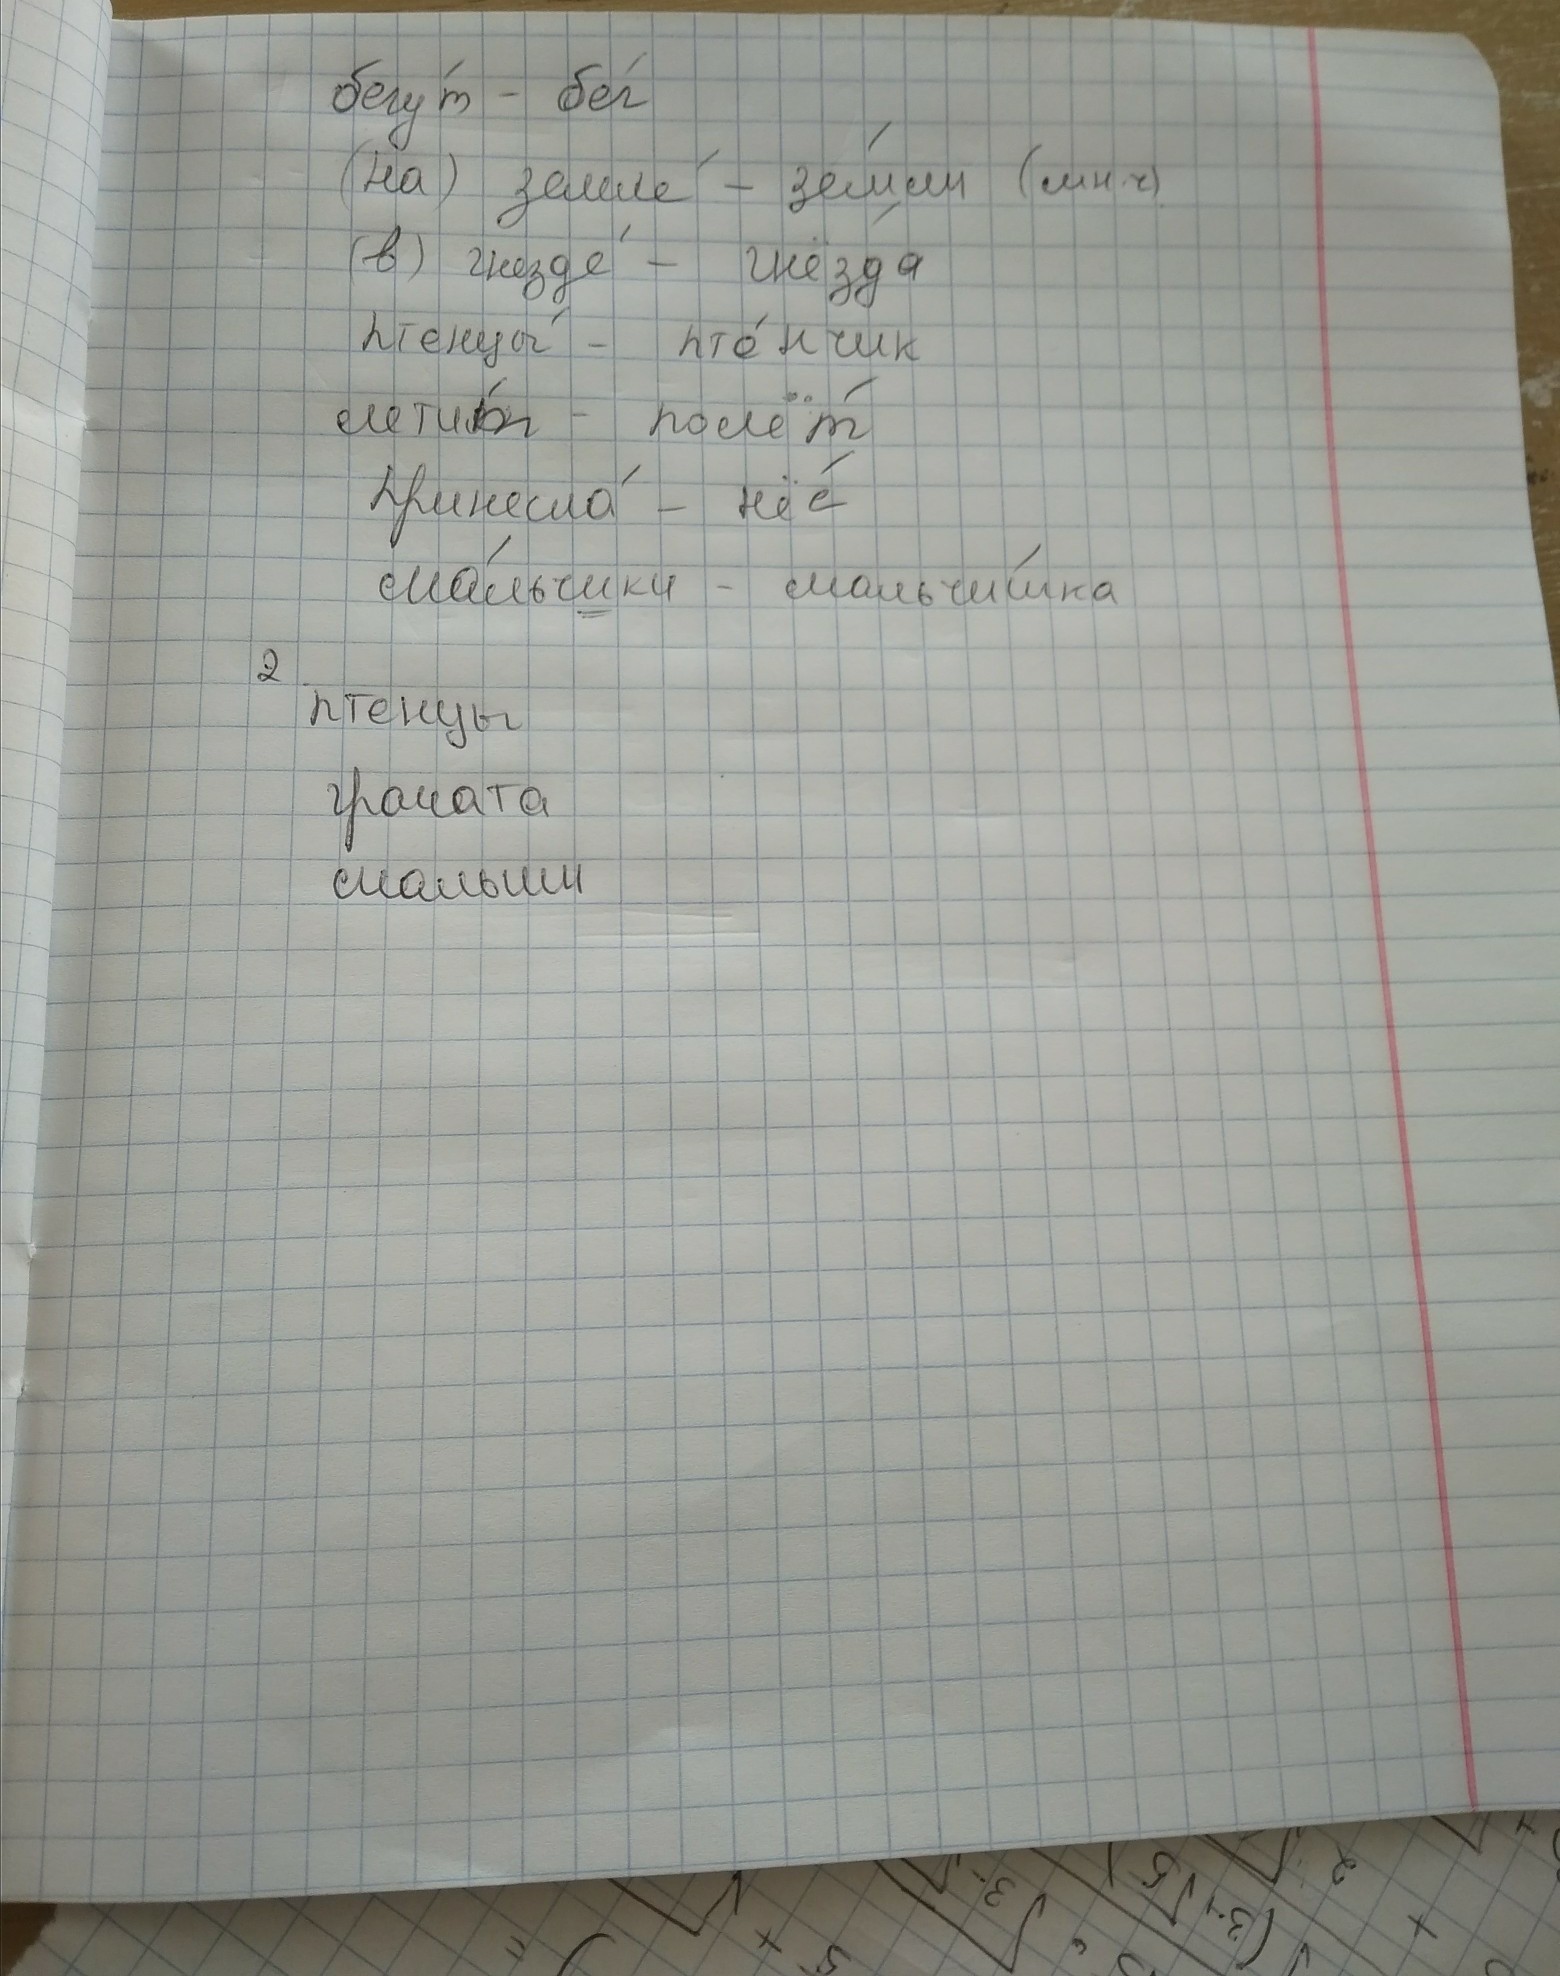 бегу́т - бе́г
(на) земле́ - зе́мли (мн.ч)
(в) гнезде́ - гнёзда
птенцы́ - пте́нчик
лети́т - полёт
принесла́ - нёс
ма́льчики - мальчи́шка
2
птенцы
грачата
малыши